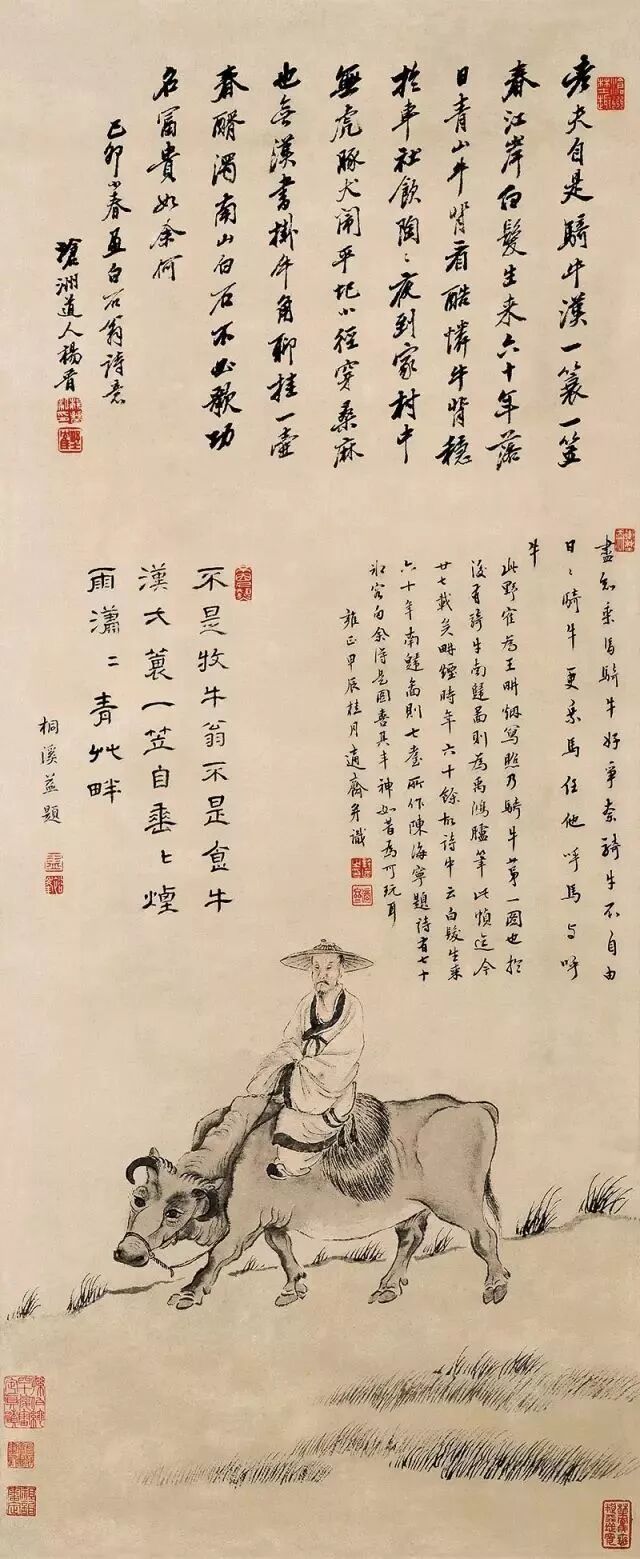 老夫自是騎牛漢一簑一笠
春江岸白髮生来六十年落
日青山牛背看酷憐牛背穩
於車社飲陶〻夜到家村中
無虎豚犬鬧平圯小徑穿桑麻
也無漢書掛牛角聊挂一壺
春醑濁南山白石不必歌功
名富貴如余何
己卯小春画白石翁詩意
洲道人楊晋
盡知乘馬騎牛好爭奈騎牛不自由
日〻騎牛更乘馬任他呼馬与呼
牛
此野寉為王畊烟寫照乃騎牛第一圖也於
後有騎牛南歸啚則為禹鴻臚筆此幀迄今
廿七載矣畊煙時年六十餘故詩中云白髮生来
六十年南歸啚則七袠所作陳海寧題詩有七十
句余得是圖喜其丰神如昔為可玩耳
雍正甲辰桂月適齋弁識
不是牧牛翁不是食牛
漢簑一笠自垂〻煙
雨瀟〻青艸畔
桐溪益題